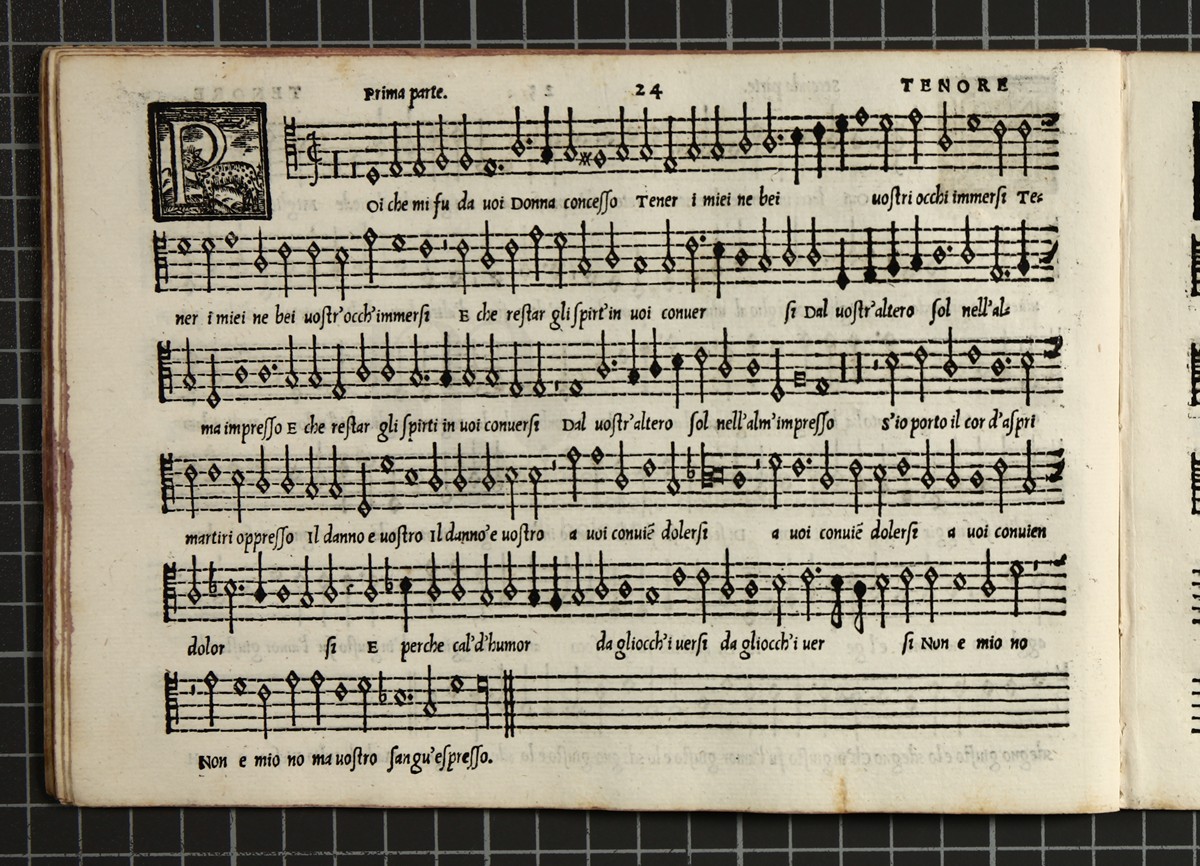 Prima parte. 24 TENORE
POi che mi fu da uoi Donna concesso Tener i miei ne bei uostri occhi immersi Te-
ner i miei ne bei uostr'occh'immersi E che restar gli spirt'in uoi conuer si Dal uostr'altero sol nell'al-
ma impresso E che restar gli spirti in uoi conuersi Dal uostr'altero sol nell'alm'impresso S'io porto il cor d'aspri
martiri oppresso Il danno e uostro Il danno'e uostro a uoi conuiē dolersi a uoi conuiē dolersi a uoi conuien
dolor si E perche cal'd'humor da gliocch'i uersi da gliocch'i uer si Non e mio no
Non e mio no ma uostro sangu'espresso.